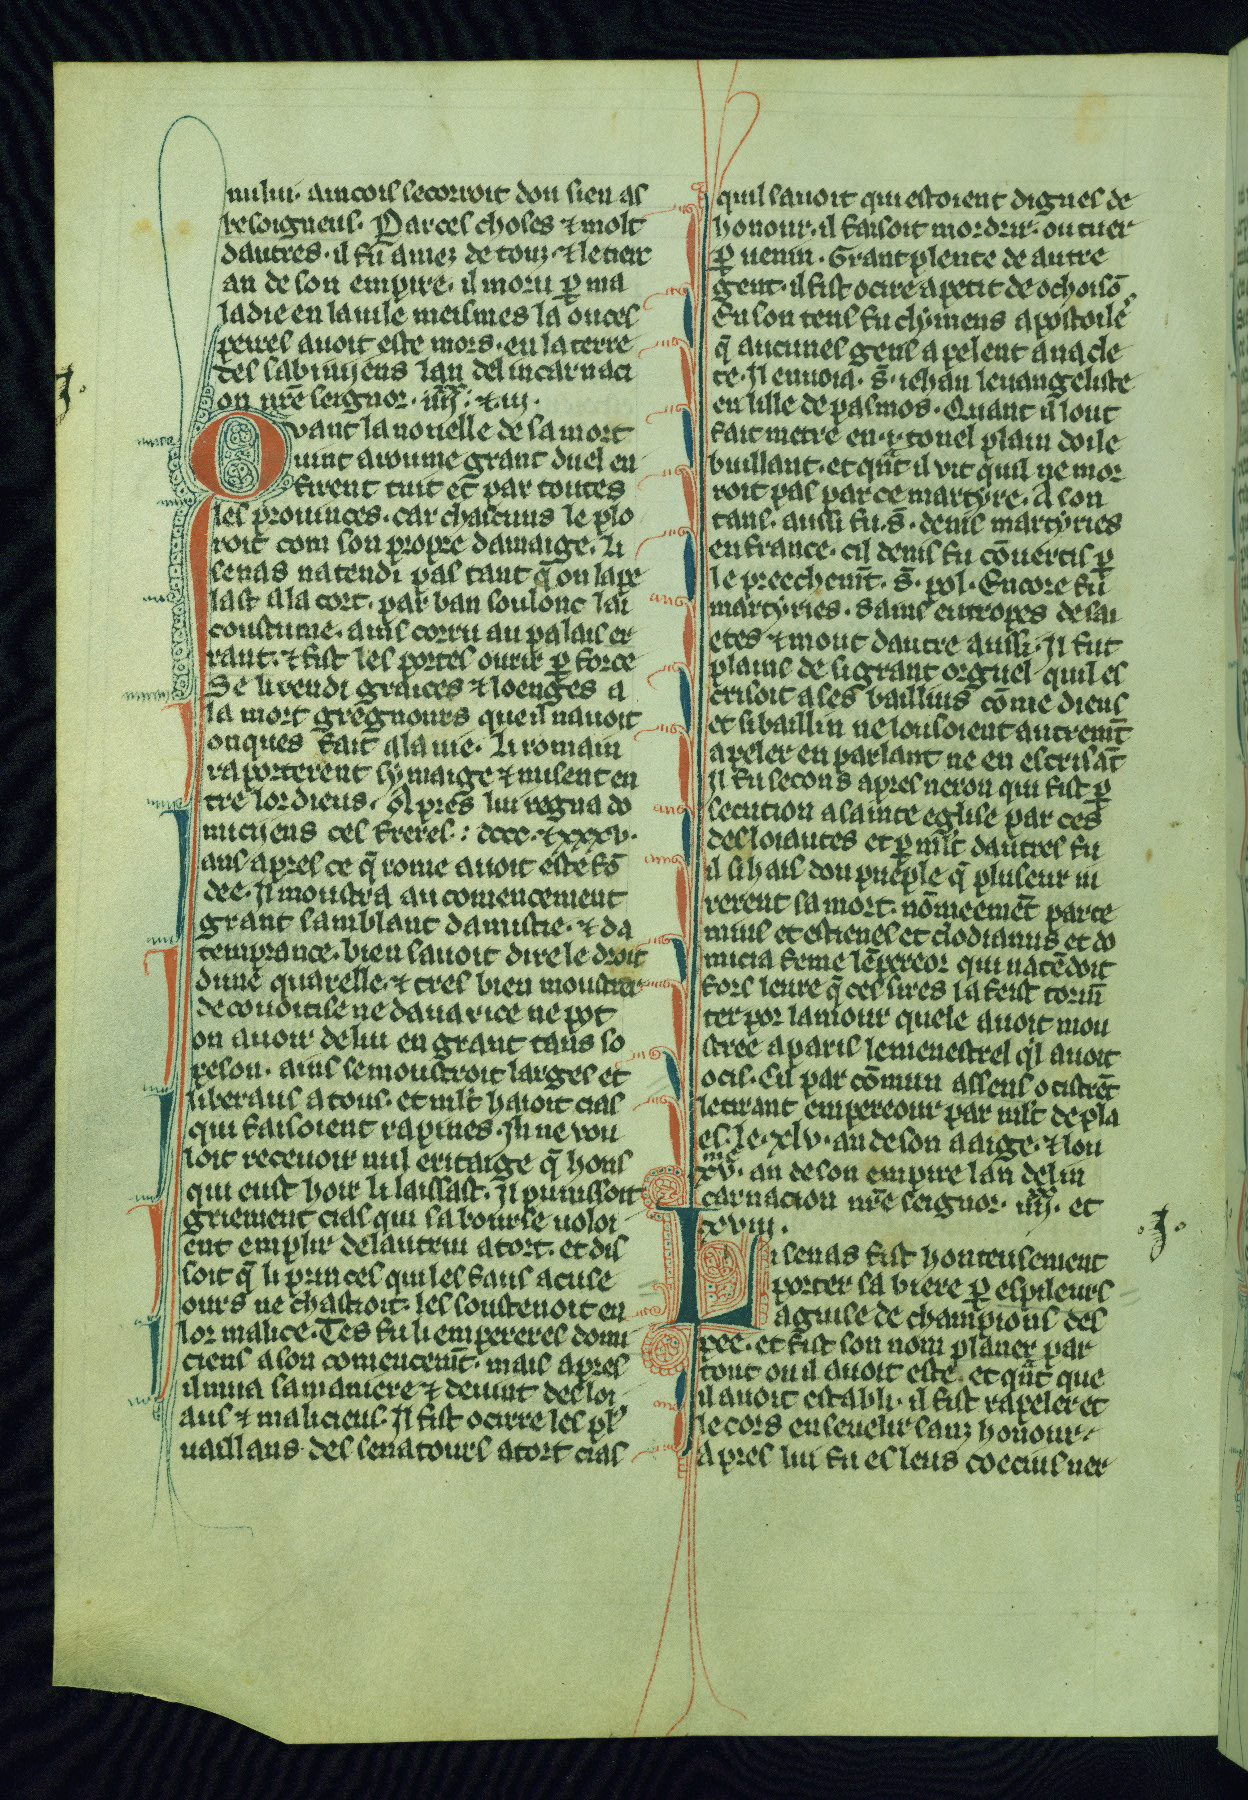 nului. aincois secorroit don sien as
besoigneus. Par ces choses ⁊ molt
dautres. il fu amez de touz. ⁊ le tierc
an de son empire. il moru ꝑ ma
ladie en la uile meismes la ou ces
peires auoit este mors. en la terre
des sabiniiens lan del incarnaci
on nr̃e seignor. iiii.xx ⁊ iii.
Qvant la nouelle de sa mort
uint a roume grant duel en
firent tuit et par toutes
les prouinces. car chascuns le plo
roit com son propre damaige. Li
senas natendi pas tant q̃ on lape
last a la cort. par ban soulonc lai
coustume. ains corru au palais er
rant. ⁊ fist les portes ourir ꝑ force
Se li rendi graices ⁊ loenges a
la mort gregnours que il nauoit
onques fait a la uie. Li romain
raporterent symaige ⁊ misent en
tre lor diens. Apres lui regna do
miciiens ces freres. : dccc. ⁊ xxxv.
ans apres ce q̃ rome auoit este fõ
dee. Il moustra au comencement
grant samblant damistie. ⁊ da
temprance. bien sauoit dire le droit
dune quarelle. ⁊ tres bien moustrer
de couoitise ne dauarice ne pot
on auoir de lui en grant tans so
peson. ains se moustroit larges et
liberaus a tous. et mlt haioit cias
qui faisoient rapines. Il ne vou
loit receuoir nul eritaige q̃ hons
qui eust hoir li laissast. Il punissoit
griement cias qui sa bourse uoloi
ent emplir de lautrui a tort. et di
soit q̃ li princes qui les faus acuse
ours ne chastioit. les soustenoit en
lor malice. Tes fu li empereres domi
ciens a son comencemt. mais apres
il mua sa maniere ⁊ deuint desloi
aus ⁊ malicieus. Il fist ocirre les pl'
uaillans des senatours a tort cias
quil sauoit qui estoient dignes de
honour. il faisoit mordrir. ou tuer
ꝑ uenin. Grant plente de autre
gent. il fist ocire a petit de ochoisõ
En son tens fu clymens apostoile
q̃ aucunes gens apelent anacle
te. Il enuoia. s. iehan leuangeliste
en lille de pasmos. Quant il lout
fait metre en. i. tonel plain doile
buillant. et qñt il vit quil ne mor
roit pas par ce martyre. A son
tans. aussi fu. s. denis martyries
en france. cil denis fu cõuertis ꝑ
le preechemt. s. pol. Encore fu
martyries. sains eutropes de sai
etes ⁊ mout dautre aussi. Il fut
plains de si grant orguel quil es
crisoit a ses baillius cõme dieus
et si baillin ne losoient autremt
apeler en parlant ne en escrisãt
Il fu secons apres neron qui fist ꝑ
secution a sainte eglise par ces
desloiautes et ꝑ mlt dautres fu
il si hais dou pueple q̃ pluseur iu
rerent sa mort. nõmeemẽt parte
nius et estienes et clodianus et do
micia feme lẽpereor qui natẽdoit
fors leure q̃ ces sires la feist torm̃
ter por lamour quele auoit mou
stree a paris le menestrel q'l auoit
ocis. Cil par cõmun assens ocistrẽt
le tirant empereour par mlt de pla
es. le. xlv. an de son aaige. ⁊ lou
xv.me an de son empire lan del in
carnacion nr̃e seignor. iiii.xx et
xviii.
Li senas fist honteusement
porter sa biere ꝑ espileurs
a guise de champions des
pee. et fist son nom planer par
tout ou il auoit este. et qñt que
il auoit establi. il fist rapeler et
le cors enseuelir sanz honour.
Apres lui fu esleus coeciusner